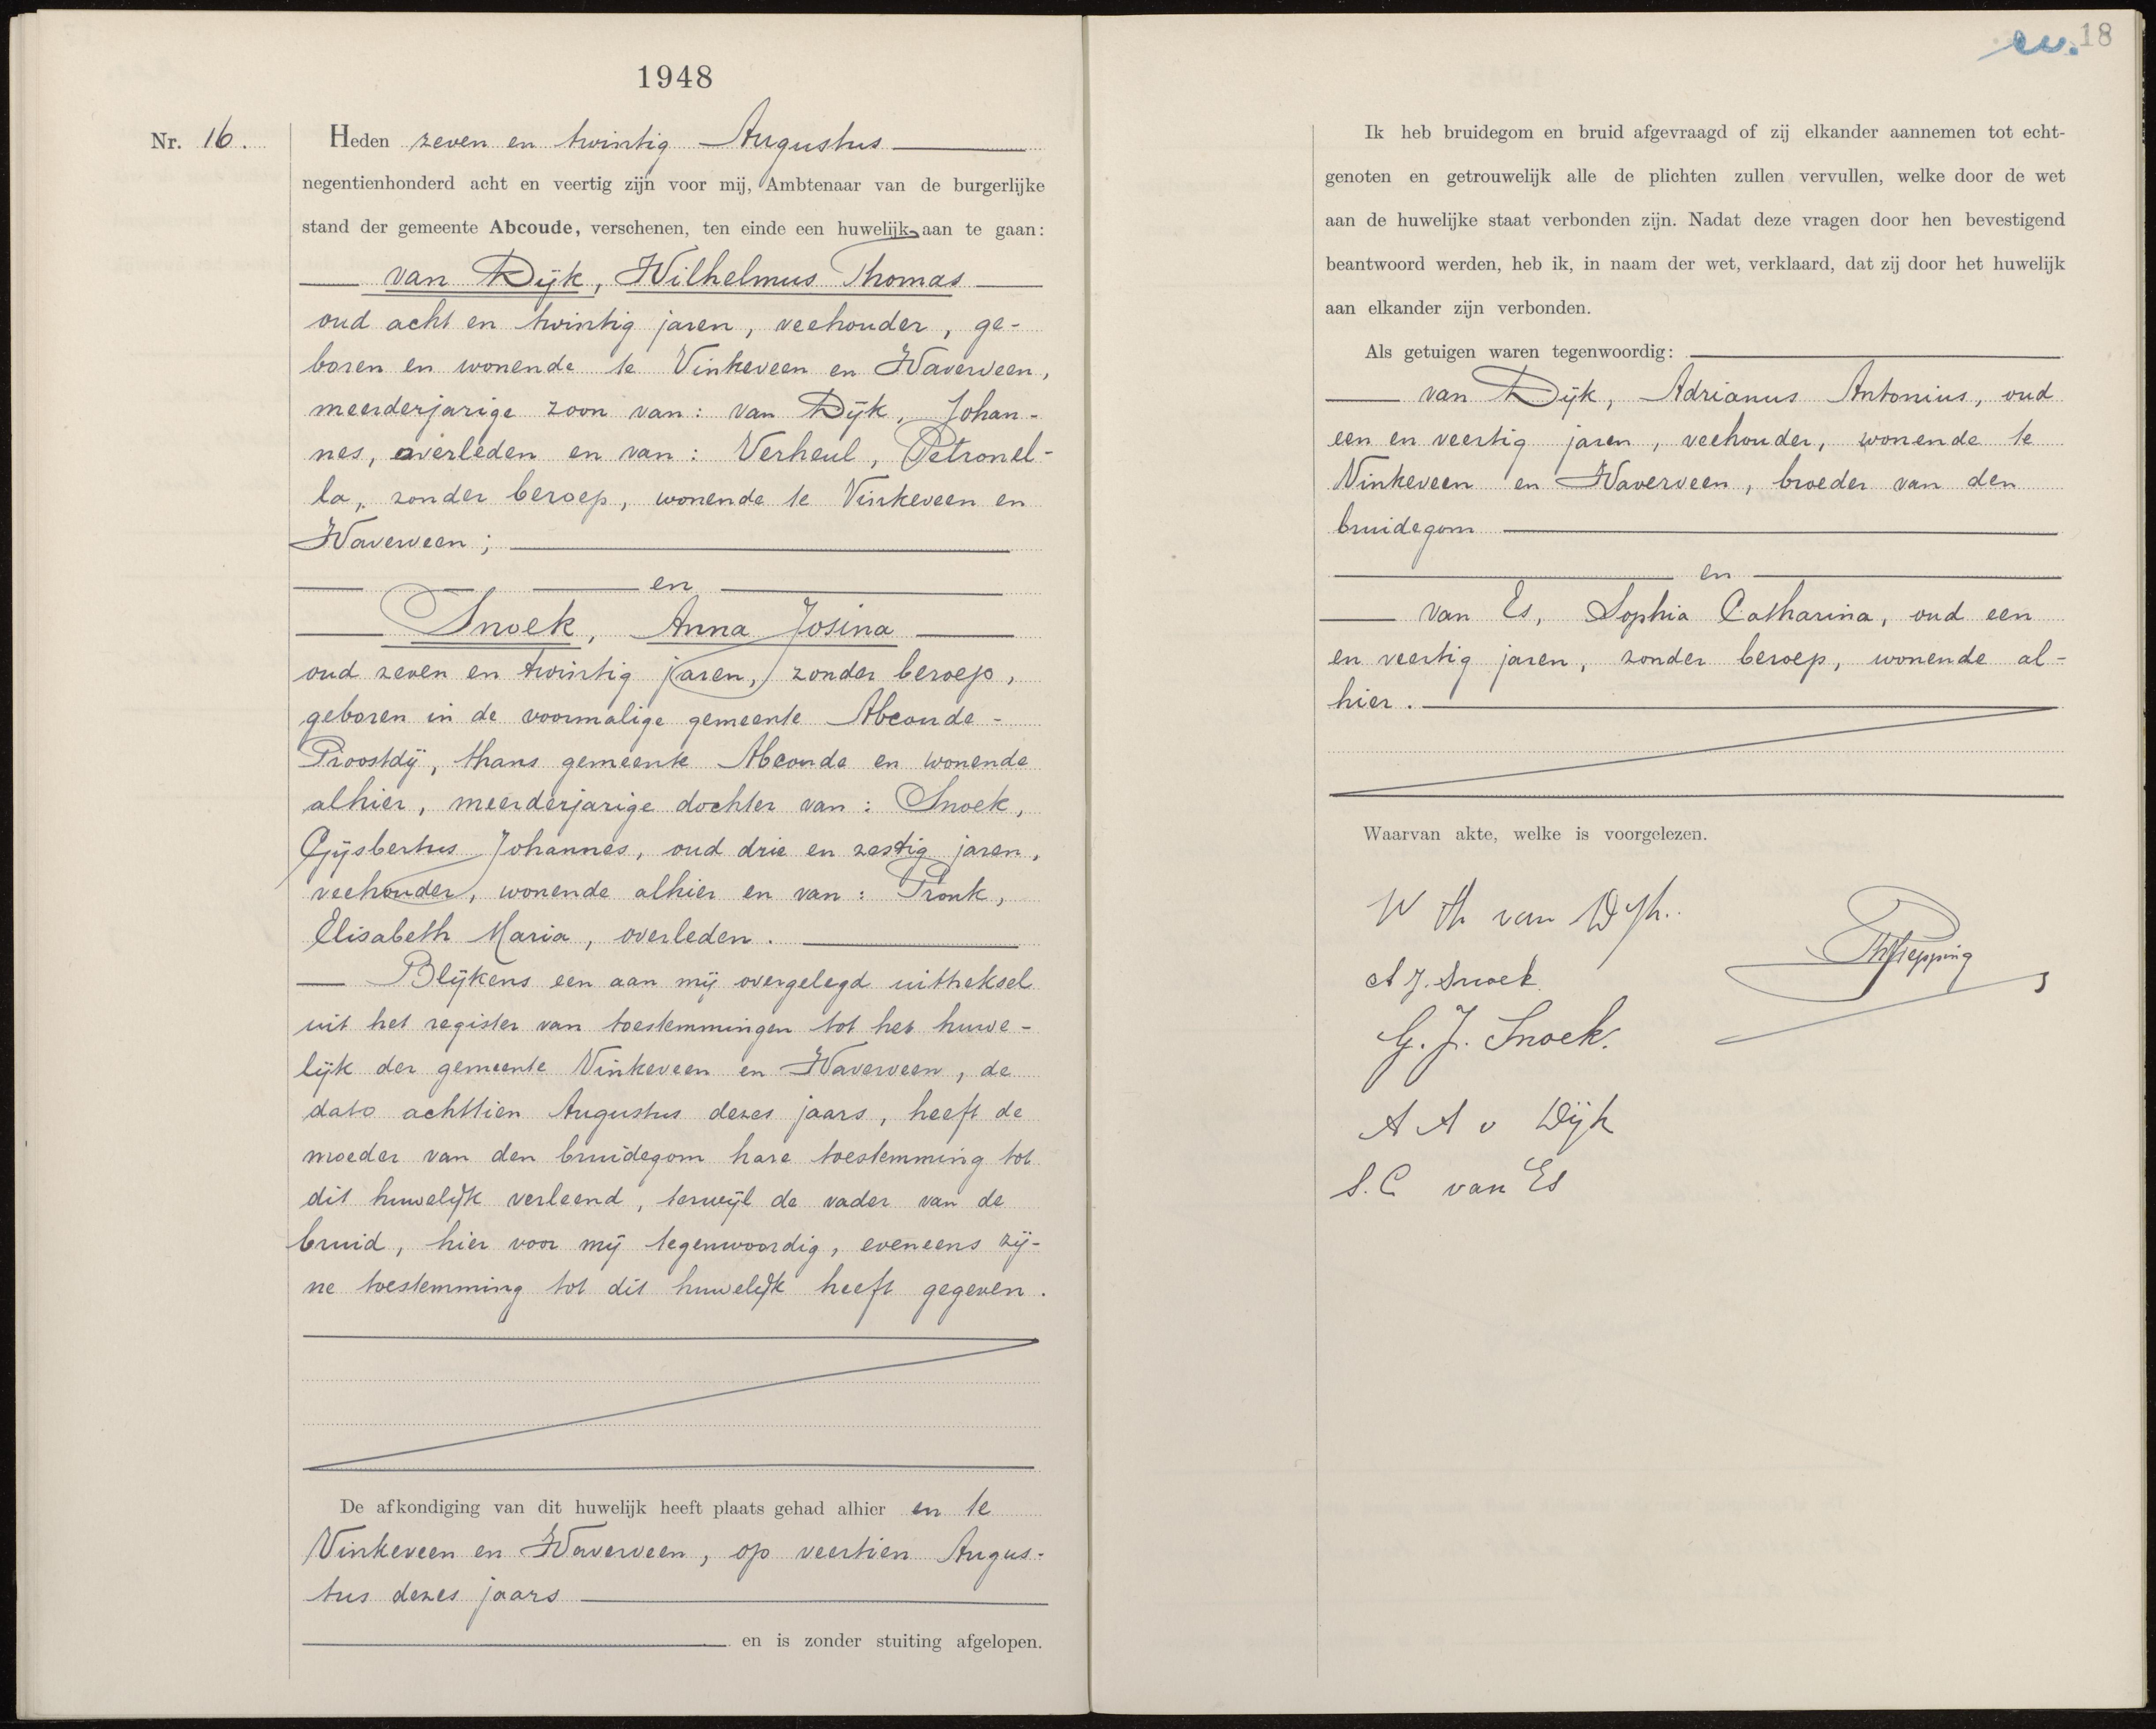 1948
Nr. 16.
Heden zeven en twintig Augustus
negentienhonderd acht en veertig zijn voor mij, Ambtenaar van de burgerlijke
stand der gemeente Abcoude, verschenen, ten einde een huwelijk aan te gaan:
van Dijk, Wilhelmus Thomas
oud acht en twintig jaren, veehouder, ge-
boren en wonende te Vinkeveen en Waverveen,
meerderjarige zoon van: van Dijk, Johan-
nes, overleden en van: Verheul, Petronel-
la, zonder beroep, wonende te Vinkeveen en
Waverveen;
en
Snoek, Anna Josina
oud zeven en twintig jaren, zonder beroep,
geboren in de voormalige gemeente Abcoude-
Proostdij, thans gemeente Abcoude en wonende
alhier, meerderjarige dochter van: Snoek,
Gijsbertus Johannes, oud drie en zestig jaren,
veehouder, wonende alhier en van: Pronk,
Elisabeth Maria, overleden.
Blijkens een aan mij overgelegd uittreksel
uit het register van toestemmingen tot het huwe-
lijk der gemeente Vinkeveen en Waverveen, de
dato achttien Augustus dezes jaars, heeft de
moeder van den bruidegom hare toestemming tot
dit huwelijk verleend, terwijl de vader van de
bruid, hier voor mij tegenwoordig, eveneens zij-
ne toestemming tot dit huwelijk heeft gegeven.
De afkondiging van dit huwelijk heeft plaats gehad alhier en te
Vinkeveen en Waverveen, op veertien Augus-
tus dezes jaars
en is zonder stuiting afgelopen.
18
Ik heb bruidegom en bruid afgevraagd of zij elkander aannemen tot echt-
genoten en getrouwelijk alle de plichten zullen vervullen, welke door de wet
aan de huwelijke staat verbonden zijn. Nadat deze vragen door hen bevestigend
beantwoord werden, heb ik, in naam der wet, verklaard, dat zij door het huwelijk
aan elkander zijn verbonden.
Als getuigen waren tegenwoordig:
van Dijk, Adrianus Antonius, oud
een en veertig jaren, veehouder, wonende te
Vinkeveen en Waverveen, broeder van den
bruidegom
en
van Es, Sophia Catharina, oud een
en veertig jaren, zonder beroep, wonende al-
hier.
Waarvan akte, welke is voorgelezen.
W Th van Dijk.
A J. Snoek
G. J. Snoek.
A A v Dijk
S. C van Es